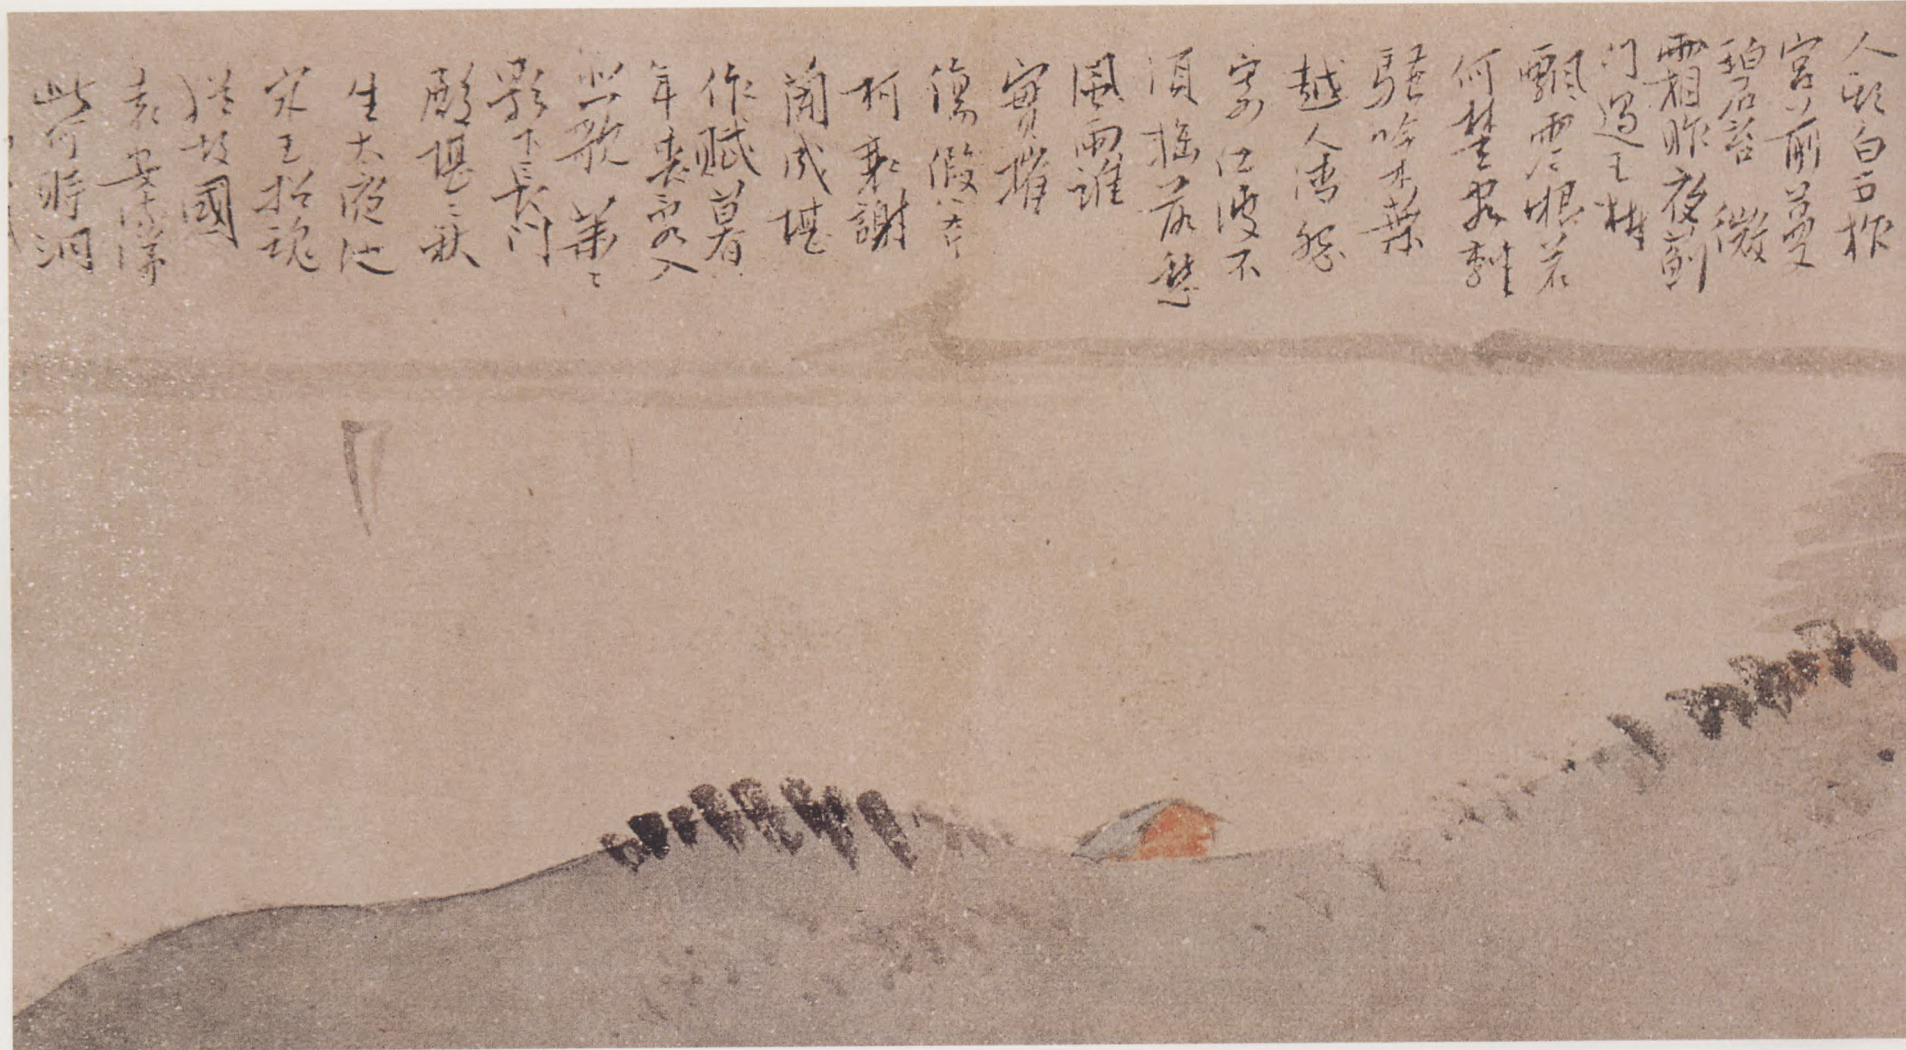 人形白石拃
宮前蔓
碧苔微
霜昨夜薊
門過玉樹
飄零恨若
何楚客離
騷吟木葉
越人清怨
寄江波不
須搖落愁
風雨誰
實摧
傷假斧
柯衰謝
蘭成堪
作賦暮
年喪亂入
悲歌 華〻
影下長門
殿堪〻秋
生太液池
宋玉招魂
猶故國
袁安流涕
此何時洞